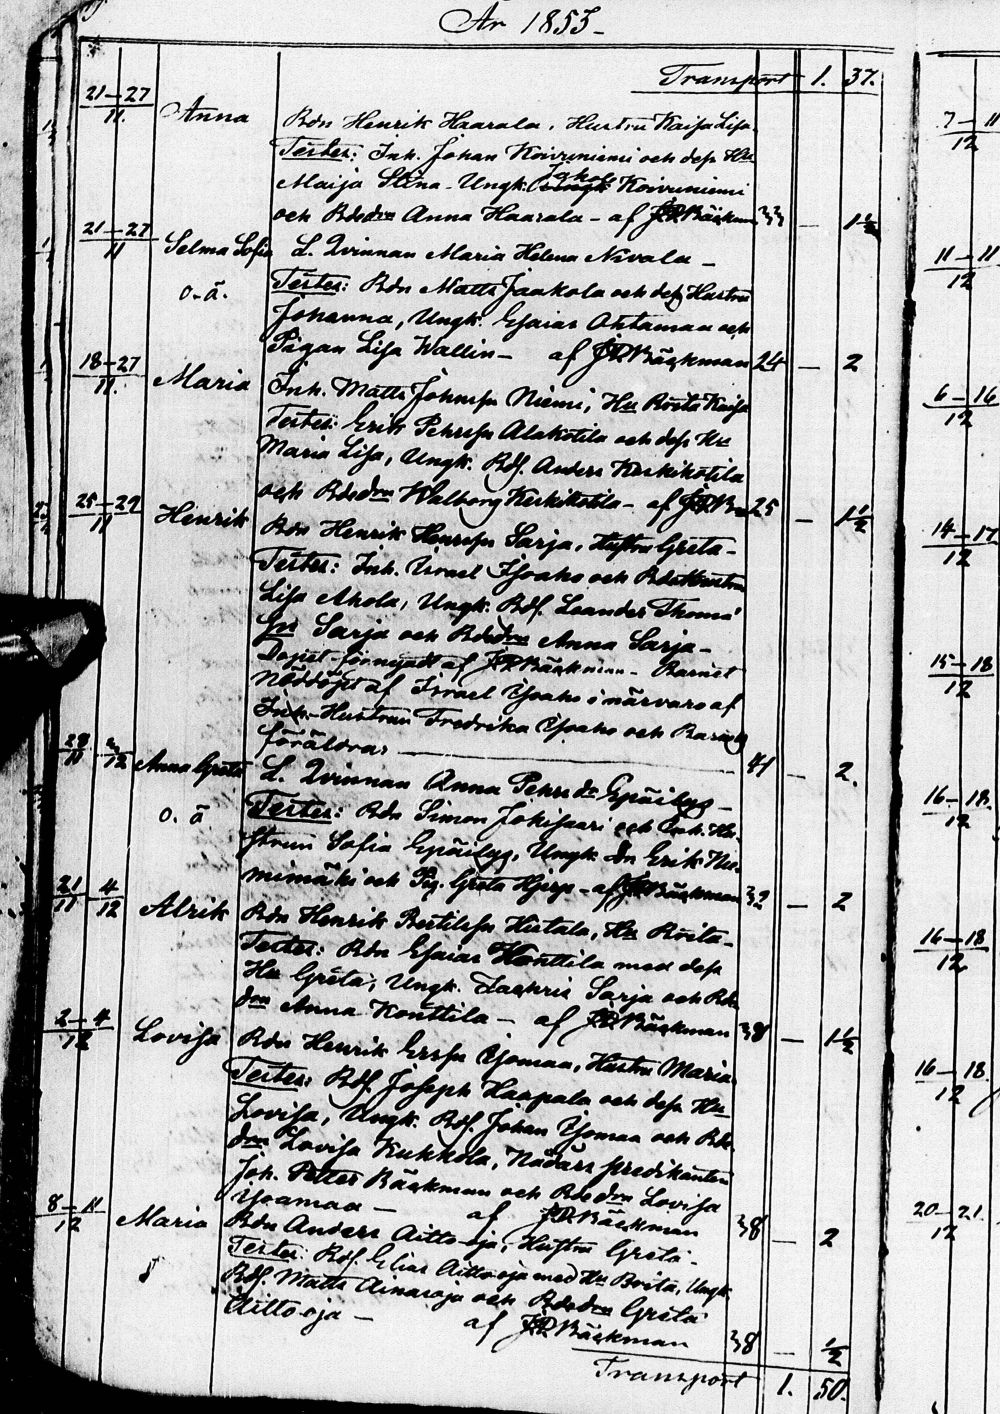 År 1855
Transport 1. 37.
21–27
11.
Anna
Bdn Henrik Haarala. Hustru Kaisa Lisa.
Testes: Inh. Johan Koivuniemi och dess Hu
Maija Stina – Ungk. Jakob Koivuniemi
och Bdedr Anna Haarala – af J.P. Bäckman 33 – 1½
21–27
11
Selma Sofia L. Qvinnan Maria Helena Nivala –
o. ä. Testes: Bdn Matts Jaakola och dess Hustru
Johanna, Ungk. Esaias Ahtamaa och
Pigan Lisa Wallin – af J.P. Bäckman 24 – 2
18–27
11.
Maria Inh. Matts Johnsson Niemi, Hu Brita Kaisa
Testes: Erik Pehrsson Alakotila och dess Hu
Maria Lisa, Ungk. Bdf. Anders Keskikotila
och Bdedr Walborg Keskikotila – af J.P.B. 25 – 1½
25–29
11
Henrik
Bdn Henrik Henrsson Sarja, Hustru Greta –
Testes: Inh. Israel Yjoaho och Bdehustru
Lisa Ahola, Ungk. Bdf. Leander Thoms
Sn Sarja och Bdedr Anna Sarja –
Dopet förnyadt af J.P. Bäckman – Barnet
Nöddöpt af Israel Yjoaho i närvaro af
Inh. Hustrun Fredrika Yjoaho och Barnets
föräldrar 41 – 2.
28
11
2
12
Anna Greta L. Qvinnan Anna Pehrsdr
o. ä Testes: Bdn Simon Jokisaari och Inh. Hu-
strun Sofia Ungk. Dn Erik Nie-
mimäki och Pig. Greta Hjerp – af J.P. Bäckman 32 – 2
21
11
4
12
Alrik Bdn Henrik Bertilsson Hietala, Hu Brita –
Testes: Bdn Esaias Konttila med dess
Hu Greta, Ungk. Zachris Sarja och Bde
dr Anna Konttila – af J.P. Bäckman 38 – 1½
2–4
12
Lovisa Bdn Henrik Ersson Yjomaa, Hustru Maria
Testes: Bdf. Joseph Haapala och dess Hu
Lovisa, Ungk. Bdf. Johan Yjomaa och Bde
dr Lovisa Kukkola, Nådårs predikanten
Joh. Petter Bäckman och Bdedr Lovisa
– af J.P. Bäckman 38 – 2
8–11
12
Maria Bdn Anders Aitto-oja, Hustru Greta –
Testes: Bdf. Elias Aitto-oja med Hu Brita, Ungk
Bdf. Matts Ainasoja och Bdedr Greta
Aitto-oja – af J.P. Bäckman 38 – ½
Transport 1. 50.
7–11
12
11–11
12
6–16
12
14–17
12
15–18
12
16–18.
12
16–18
12
16–18.
12
20–21.
12